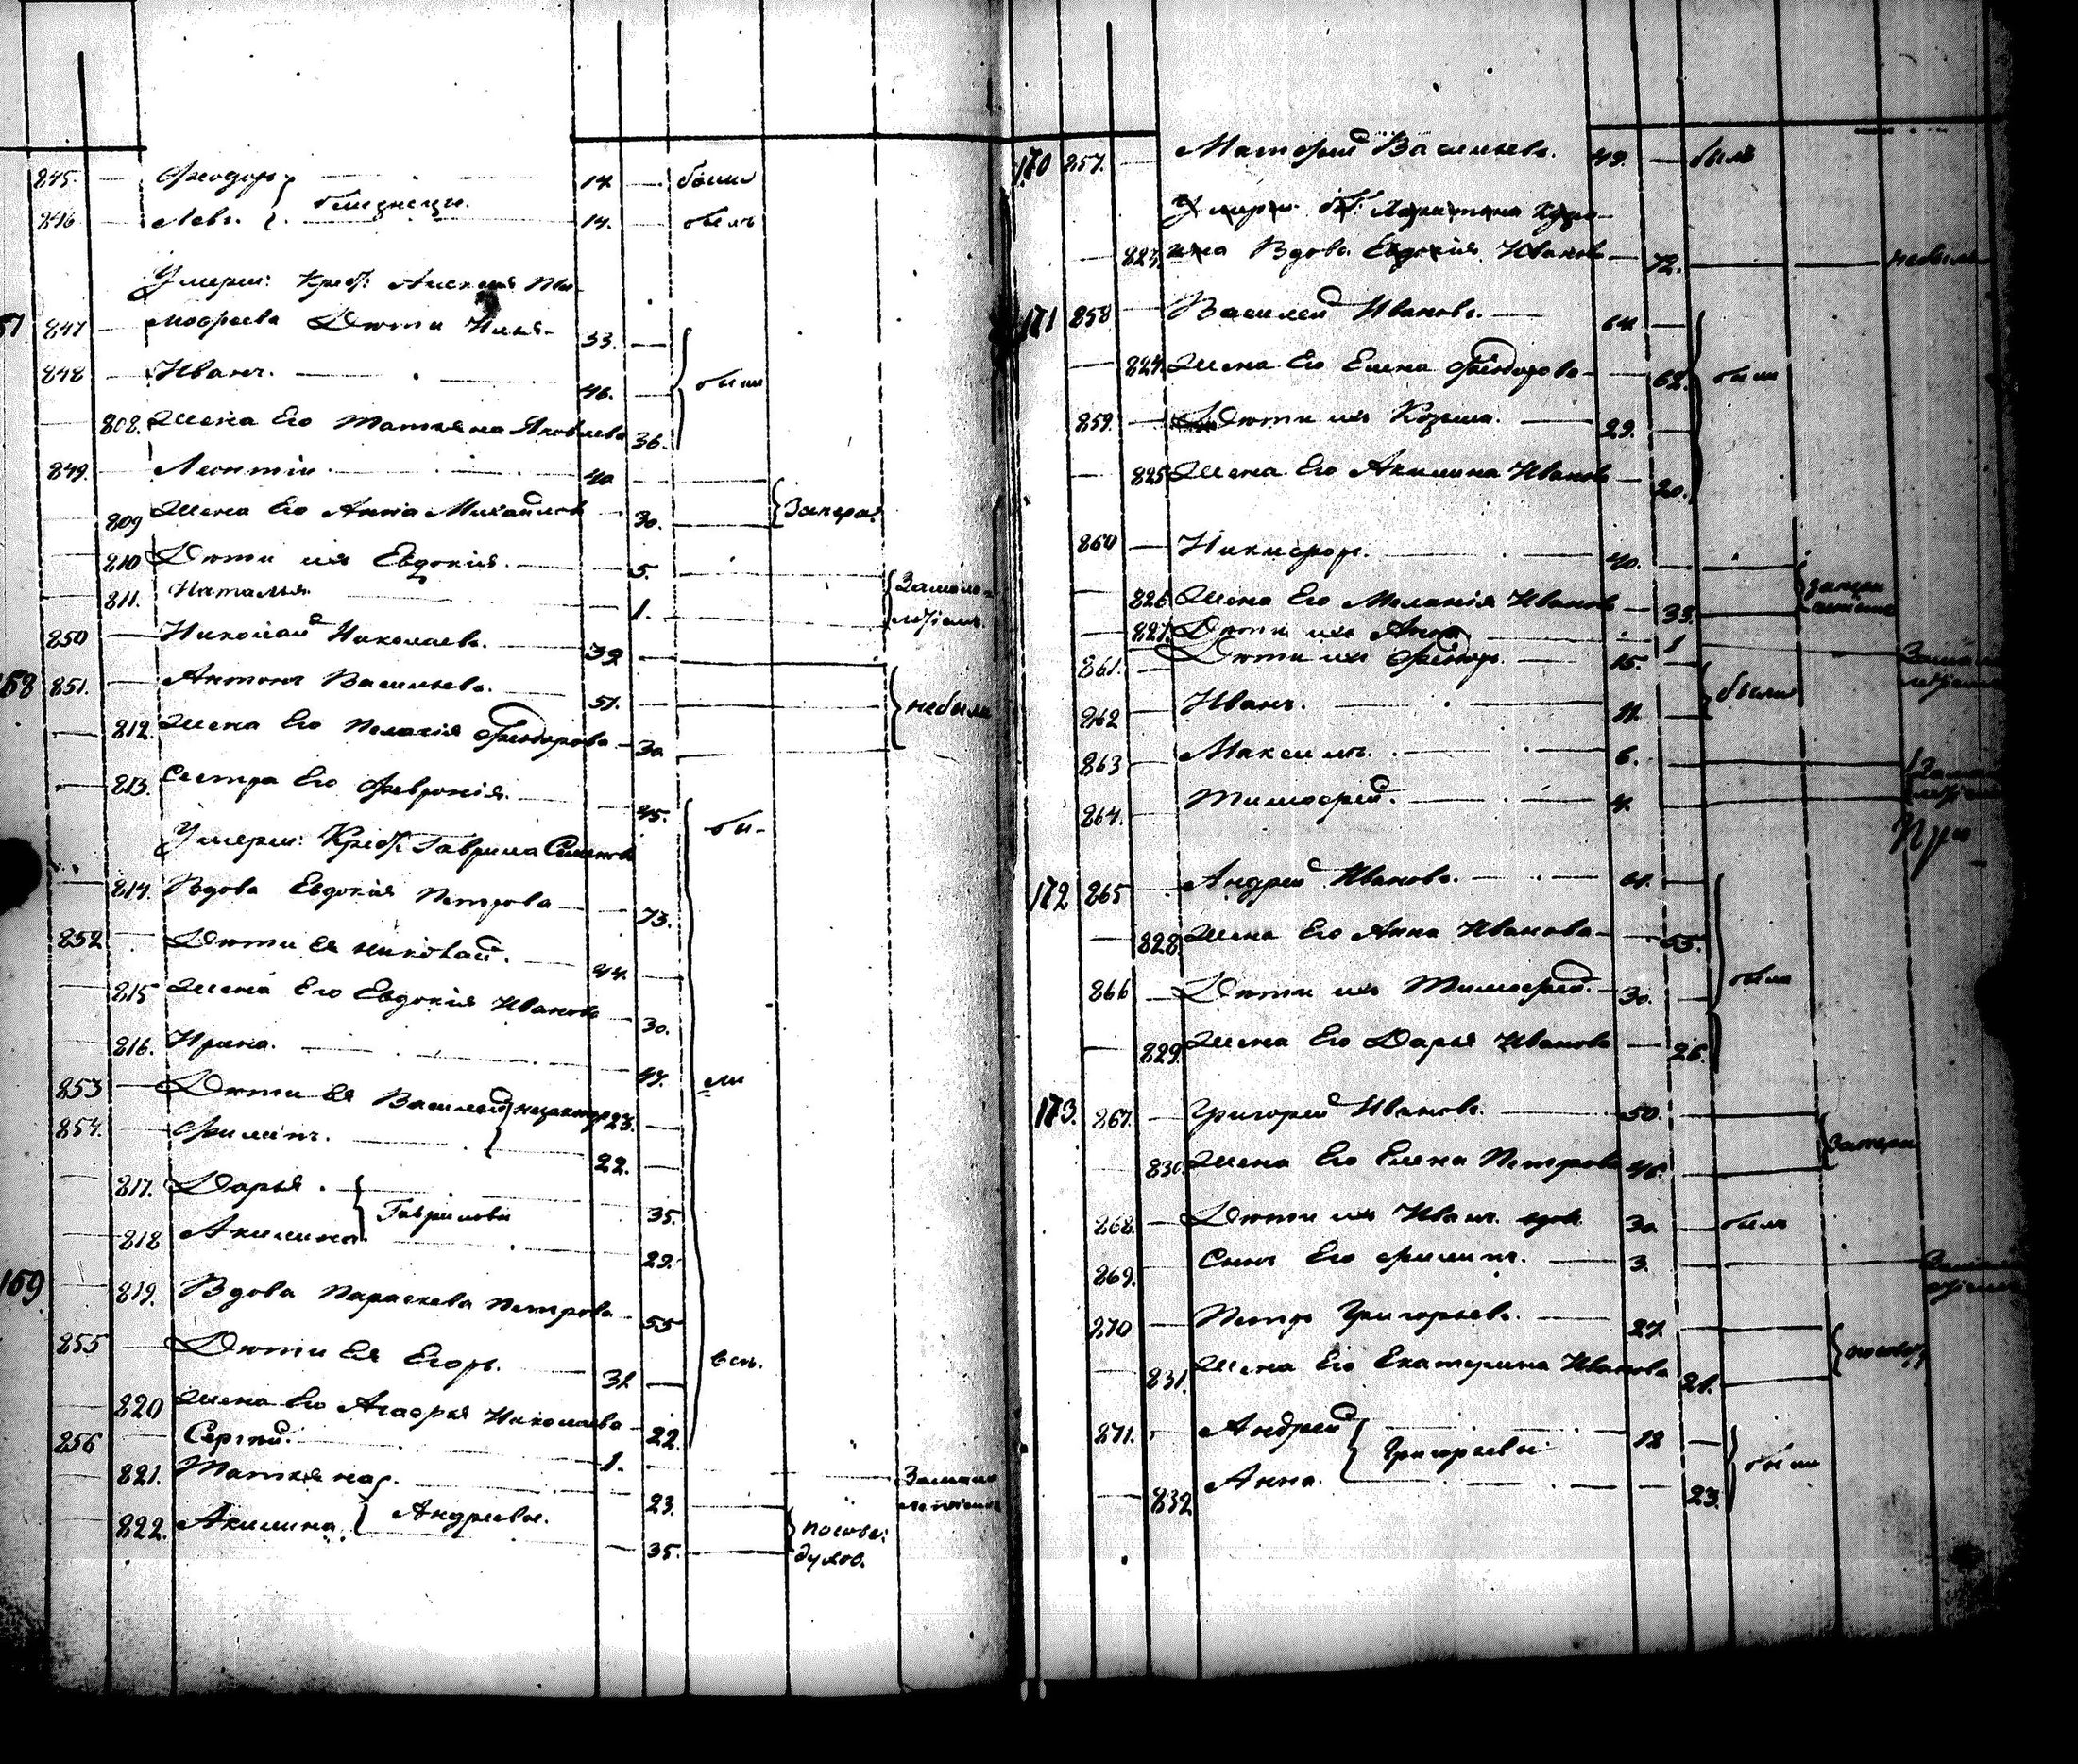 845. Феодоръ 14. были
близнецы.
846 Левъ. 14. былъ
Умерш: Крест: Алексея Ти-
167 847 мофеева Дѣти Илья 33.
848 Иванъ. 46. были
808. Жена Его Татьяна Яковлева 36.
849. Леонтiй 40
809 Жена Его Анна Михайлов 30. Заперв:
810 Дѣти ихъ Евдокiя. 5.
811. Наталья 1. Замало-
лѣтiемъ.
850 Николай Николаевъ. 39
168 851. Антонъ Васильевъ. 51. небыли
812. Жена Его Пелагiя Феодорова 30
813. Сестра Его Февронiя. 45. бы-
Умерш: Крест: Гаврила Семенова
814. Вдова Евдокiя Петрова 73.
852 Дѣти Ея Николай. 44.
815 Жена Его Евдокiя Иванова 30.
816. Ирина. 47. ли
853 Дѣти Ея Василей 23.
854. Филипъ. 22.
817. Дарья. 35.
Гавриловы
818 Акилина 29.
169 819. Вдова Параскева Петрова 55
855 Дѣти Ея Егоръ. 31. всѣ.
820 Жена Его Агафья Николаева 22.
856 Сергей. 1. Замало
лѣтiемъ
821. Татьяна 23.
Андреевы.
822. Акилина 35. послѣ:
дующ.
170 857. Матфей Васильевъ. 49. былъ
Умерш. Харитона Кузь-
823. мина Вдова Евдокiя Иванова 72. небыла
171 858 Василей Ивановъ. 64.
824. Жена Его Елена Феодорова 62. были
859. Дѣти ихъ Козьма. 29.
825 Жена Его Акилина Иванова 20.
860 Никифоръ. 40.
826 Жена Его Меланiя Иванова 33.
827. Дѣти ихъ Анна 1 Замало
лѣтiемъ
861. Дѣти ихъ Феодоръ. 15. были
862 Иванъ. 11.
863 Максимъ. 6. Замало
лѣтiемъ
864. Тимофей. 4.
При
172 865 Андрей Ивановъ. 61.
828. Жена Его Анна Иванова 55.
866 Дѣти ихъ Тимофей. 30. были
829. Жена Его Дарья Иванова 26.
173. 867. Григорей Ивановъ. 50. Заперв
830. Жена Его Елена Петрова 46.
868. Дѣти ихъ Иванъ вдов. 30 былъ
869. Сынъ Его Филипъ. 3. Замало
лѣтiемъ
870 Петръ Григорьевъ. 27.
831. Жена Его Екатерина Иванова 21.
871. Андрей 18
Григорьевы были
832 Анна. 23.